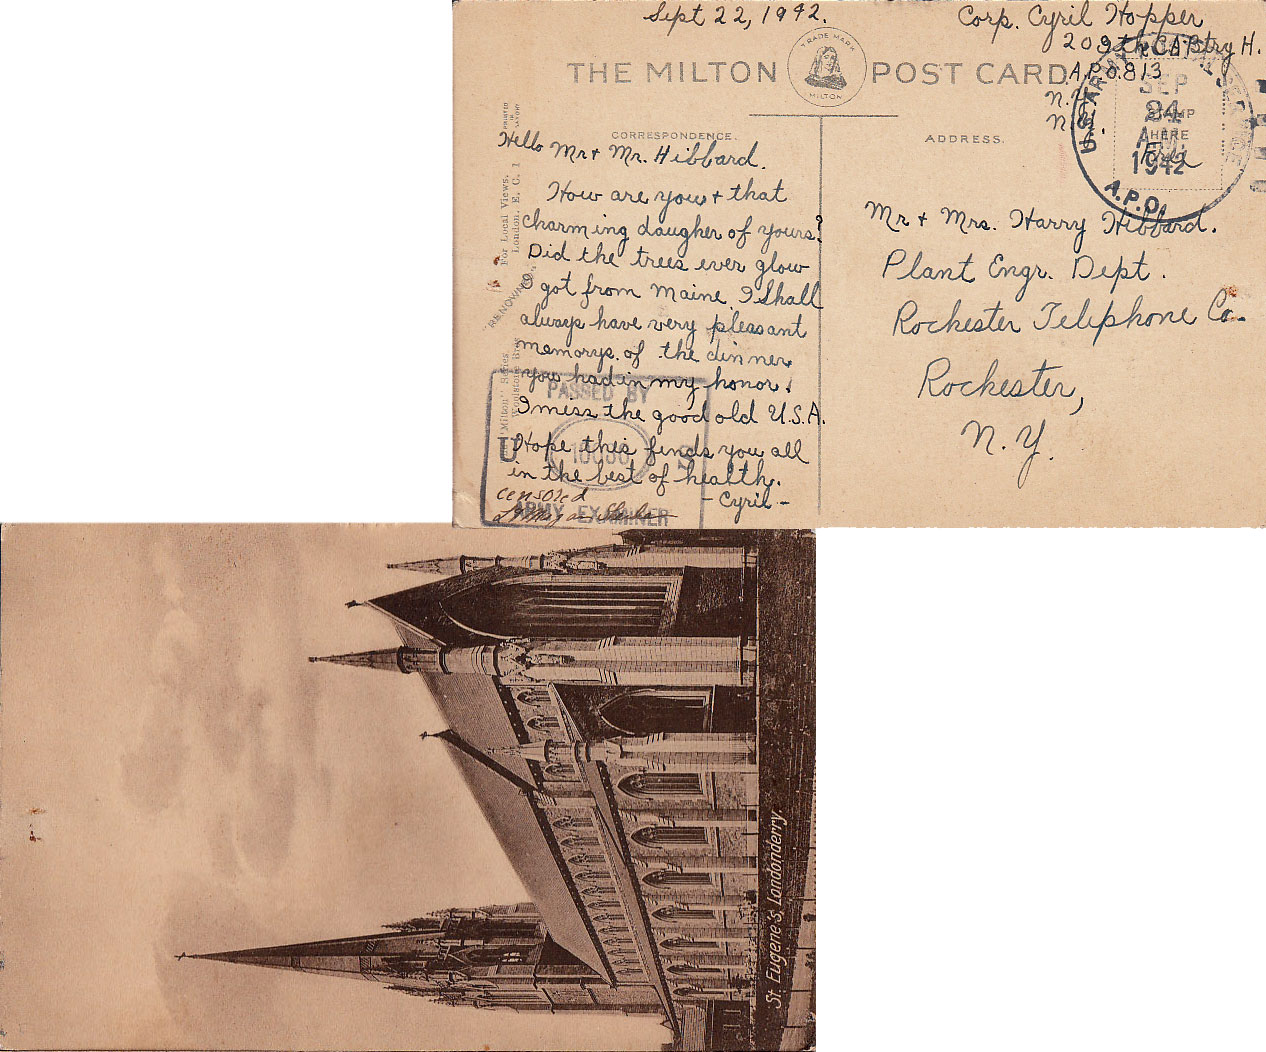 Sept 22, 1942.
Corp. Cyril Hopper
209th C.A. Btry H.
A.P.O. 813
N.Y.
N.Y.
THE MILTON POST CARD
TRADE MARK
MILTON
U.S. ARMY POSTAL SERVICE
SEP
24
A.M.
1942
A.P.O.
STAMP
HERE
Free
CORRESPONDENCE.
ADDRESS.
Hello Mr + Mr. Hibbard.
How are you + that
charming daugher of yours?
Did the trees ever glow
I got from Maine. I shall
always have very pleasant
memorys. of the dinner
you had in my honor.
I miss the good old U.S.A.
Hope this finds you all
in the best of health.
-Cyril-
Mr + Mrs. Harry Hibbard.
Plant Engr. Dept.
Rochester Telephone Co.
Rochester,
N.Y.
"Milton" Series.
Woolstone Bros.
"RENOWNED"
For Local Views.
London. E. C. 1
PRINTED
PASSED BY
U S
ARMY EXAMINER
censored
St. Eugene's, Londonderry.